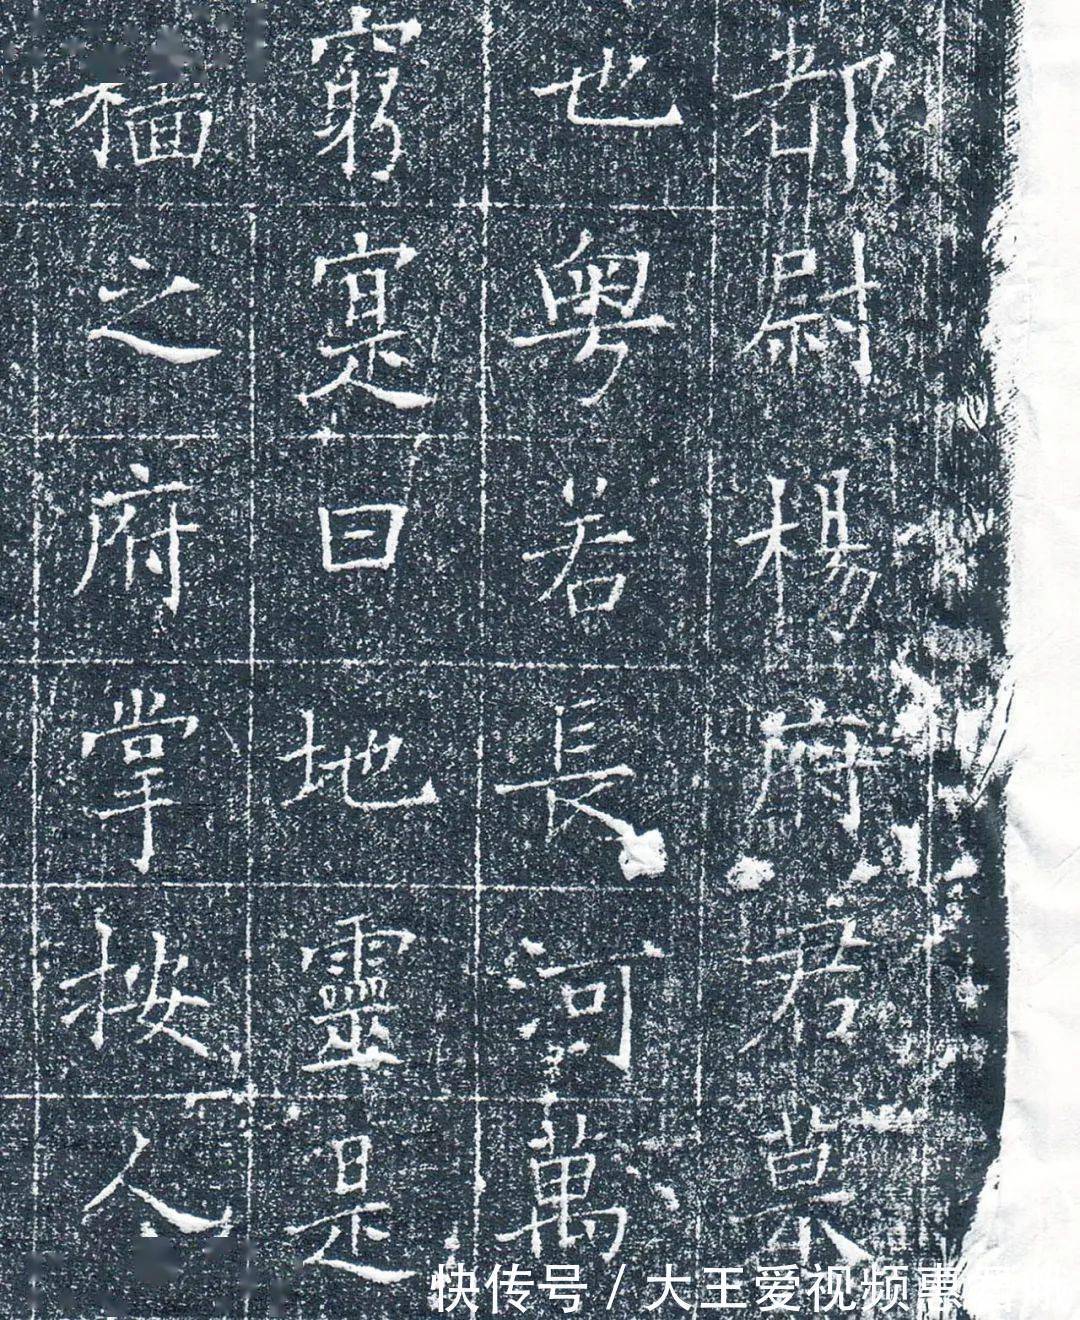 都尉楊府君墓
也粤若長河萬
窮寔曰地靈是
之府掌按人
快传号 / 大王爱视频惠